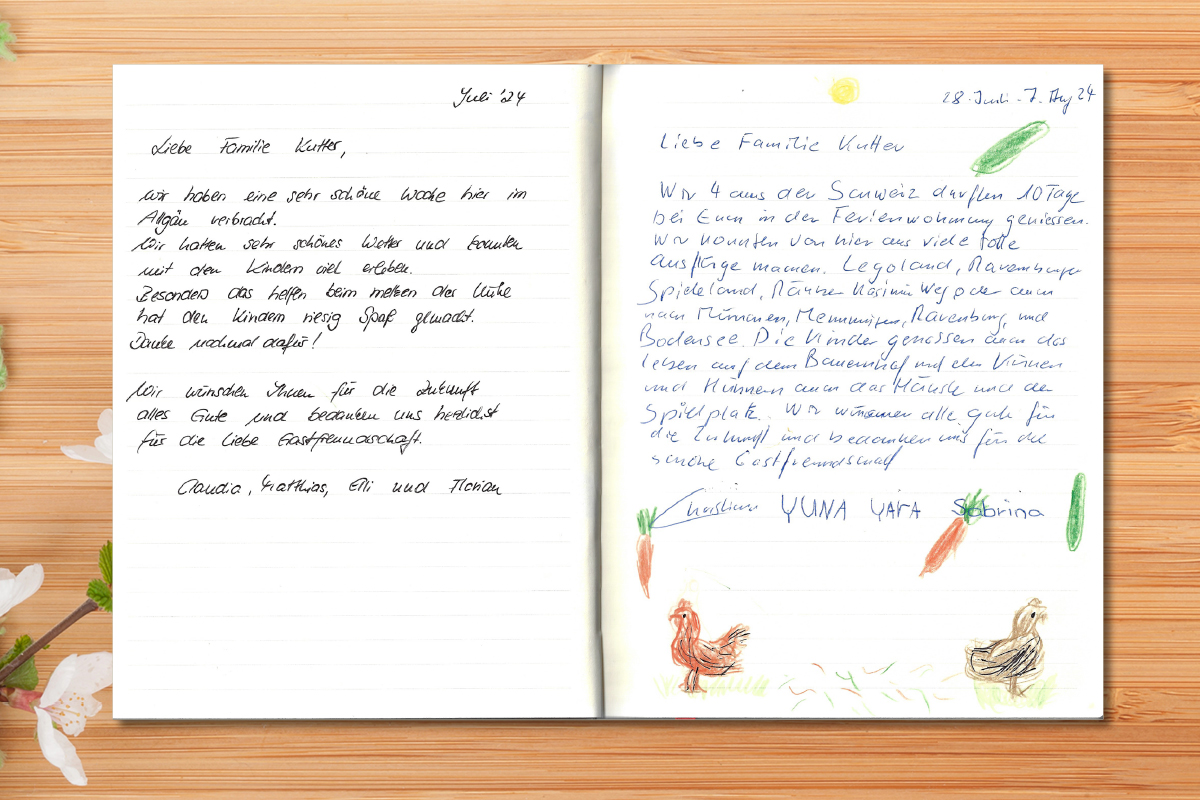 Juli '24
Liebe Familie Kutter,
wir haben eine sehr schöne Woche hier im
Allgäu verbracht.
Wir hatten sehr schönes Wetter und konnten
mit den Kindern viel erleben.
Besonders das helfen beim melken der Kühe
hat den Kindern riesig Spaß gemacht.
Danke nochmal dafür!
Wir wünschen Ihnen für die Zukunft
alles Gute und bedanken uns herzlichst
für die liebe Gastfreundschaft.
Claudia, Matthias, Elli und Florian
28. Juli - 7. Aug 24
Liebe Familie Kutter
Wir 4 aus der Schweiz durften 10 Tage
bei Euch in der Ferienwohnung geniessen.
Wir konnten von hier aus viele tolle
Ausflüge machen. Legoland, Ravensburger
Spieleland, Räuber Kasimir Weg oder auch
nach München, Memmingen, Ravensburg und
Bodensee. Die Kinder genossen auch das
leben auf dem Bauernhof mit den Kühen
und Hühnern auch das Häusle und der
Spielplatz. Wir wünschen alle gute für
die Zukunft und bedanken uns für die
schöne Gastfreundschaft
Christian YUNA YARA Sabrina